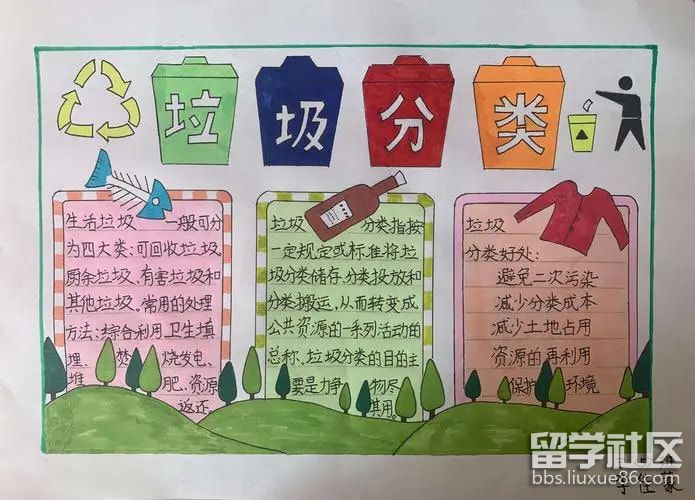 垃圾分类
生活垃圾 一般可分
为四大类:可回收垃圾、
厨余垃圾、有害垃圾和
其他垃圾。常用的处理
方法:综合利用、卫生填
埋、焚 烧发电、
堆 肥、资源
返还。
垃圾 分类指按
一定规定或标准将垃
圾分类储存、分类投放和
分类搬运,从而转变成
公共资源的一系列活动的
总称。垃圾分类的目的主
要是力争 物尽
其用。
垃圾
分类好处:
避免二次污染
减少分类成本
减少土地占用
资源的再利用
保护 环境
留学社区
bbs.liuxue86.com